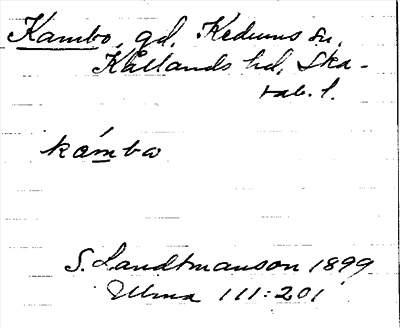 Kambo, gd, Kedums sn,
Kållands hd, Ska-
rab. l.
kámbω
S. Landtmanson 1899
Ulma 111:201